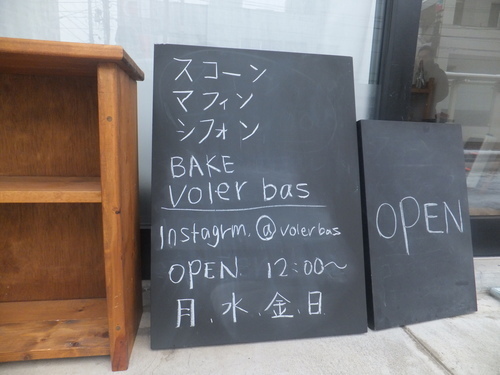 スコーン
マフィン
シフォン
BAKE
voler bas
Instagrm. @volerbas
OPEN. 12:00〜
月、水、金、日
OPEN